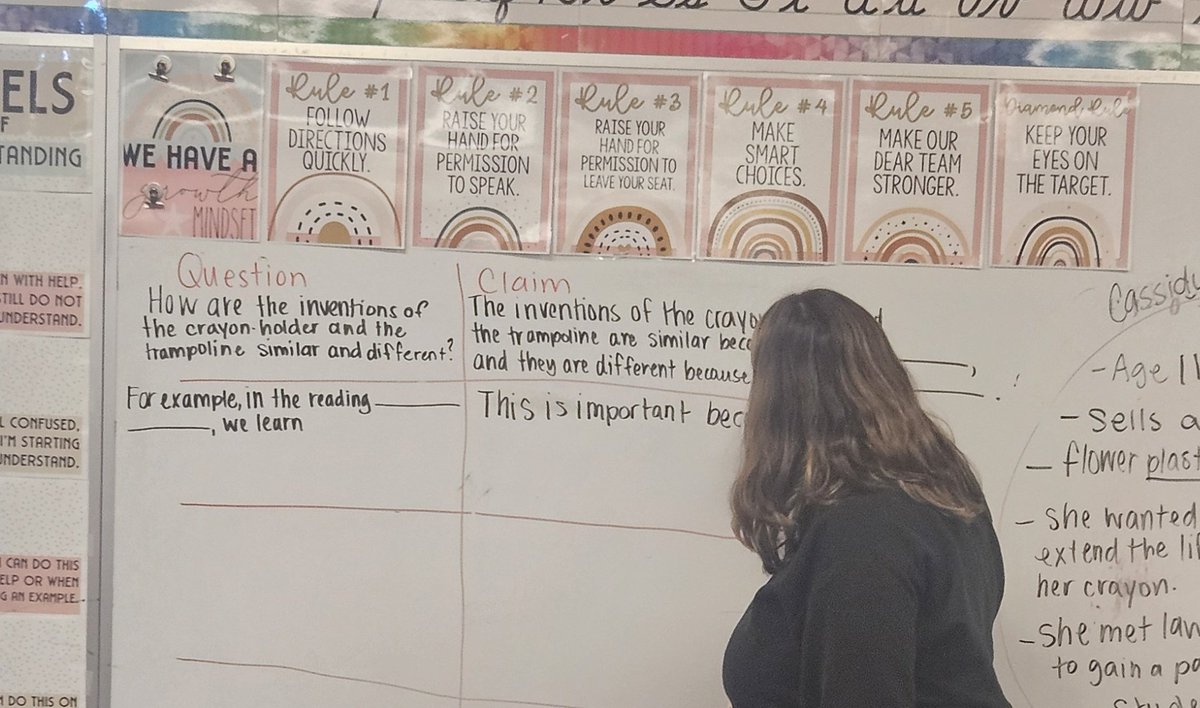 ELS
F
TANDING
N WITH HELP.
STILL DO NOT
UNDERSTAND.
L CONFUSED.
I'M STARTING
UNDERSTAND.
I CAN DO THIS
ELP OR WHEN
G AN EXAMPLE.
DO THIS ON
WE HAVE A
growth
MINDSET
Rule #1
FOLLOW
DIRECTIONS
QUICKLY.
Rule #2
RAISE YOUR
HAND FOR
PERMISSION
TO SPEAK.
Rule #3
RAISE YOUR
HAND FOR
PERMISSION TO
LEAVE YOUR SEAT.
Rule #4
MAKE
SMART
CHOICES.
Rule #5
MAKE OUR
DEAR TEAM
STRONGER.
Diamond Rule
KEEP YOUR
EYES ON
THE TARGET.
Question
How are the inventions of
the crayon-holder and the
trampoline similar and different?
Claim
The inventions of the crayo
the trampoline are similar bec
and they are different because
For example, in the reading ______
______, we learn
This is important bec
Cassidy
- Age 11
- Sells a
- flower plast
- She wanted
extend the li
her crayon.
- She met law
to gain a pa